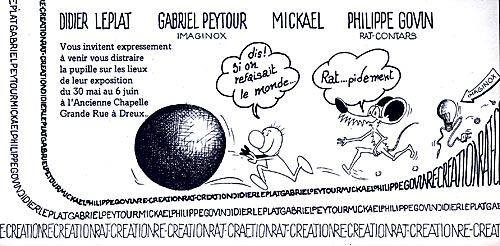 DIDIER LEPLAT GABRIEL PEYTOUR MICKAEL PHILIPPE GOVIN
IMAGINOX RAT-CONTARS
Vous invitent expressement
à venir vous distraire
la pupille sur les lieux
de leur exposition
du 30 mai au 6 juin
à l'Ancienne Chapelle
Grande Rue à Dreux..
dis!
Si on
refaisait
le monde...
Rat...pidement
IMAGINOX
LEPLATGABRIELPEYTOURMICKAELPHILIPPEGOVINDIDIERLEPLATGABRIELPEYTOURMICKAELPHILIPPEGOVINDIDIERLEPLATGABRIELPEYTOURMICKAELPHILIPPEGOVINDIDIERLEPLATGABRIELPEYTOUR
RE-CREATIONRAT-CREATIONDIDIERLEPLATGABRIELPEYTOURMICKAELPHILIPPEGOVINRE-CREATIONRECREATION
E-CREATIONRECREATIONRAT-CREATIONRE-CREATIONRAT-CRAETIONRAT-CREATIONRE-CREATIONRAT-CREATIONRE-CREAT